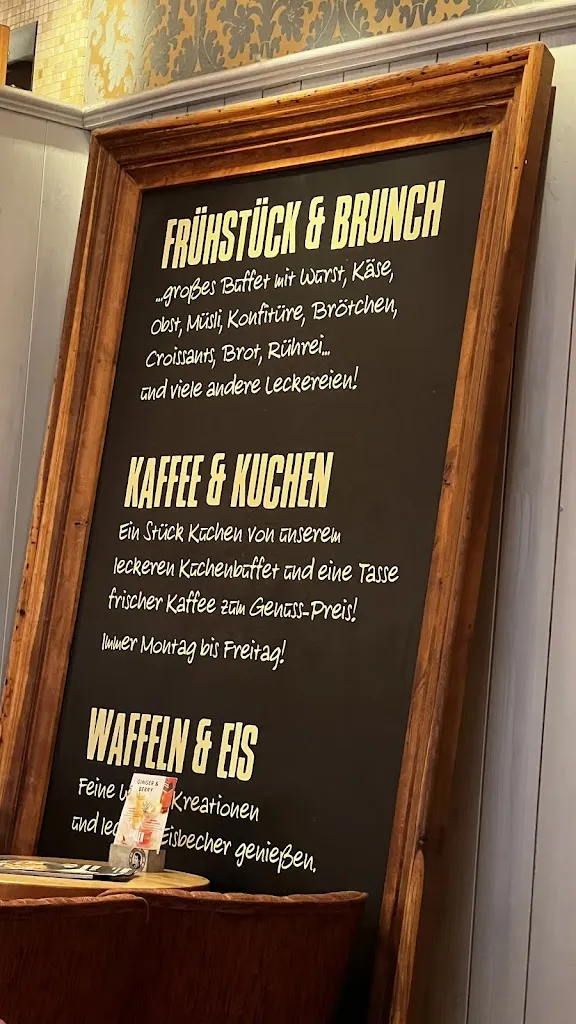 FRÜHSTÜCK & BRUNCH
...großes Buffet mit Wurst, Käse,
Obst, Müsli, Konfitüre, Brötchen,
Croissants, Brot, Rührei...
und viele andere Leckereien!
KAFFEE & KUCHEN
Ein Stück Kuchen von unserem
leckeren Kuchenbuffet und eine Tasse
frischer Kaffee zum Genuss-Preis!
Immer Montag bis Freitag!
WAFFELN & EIS
Feine Kreationen
und Eisbecher genießen.
GINGER &
BERRY